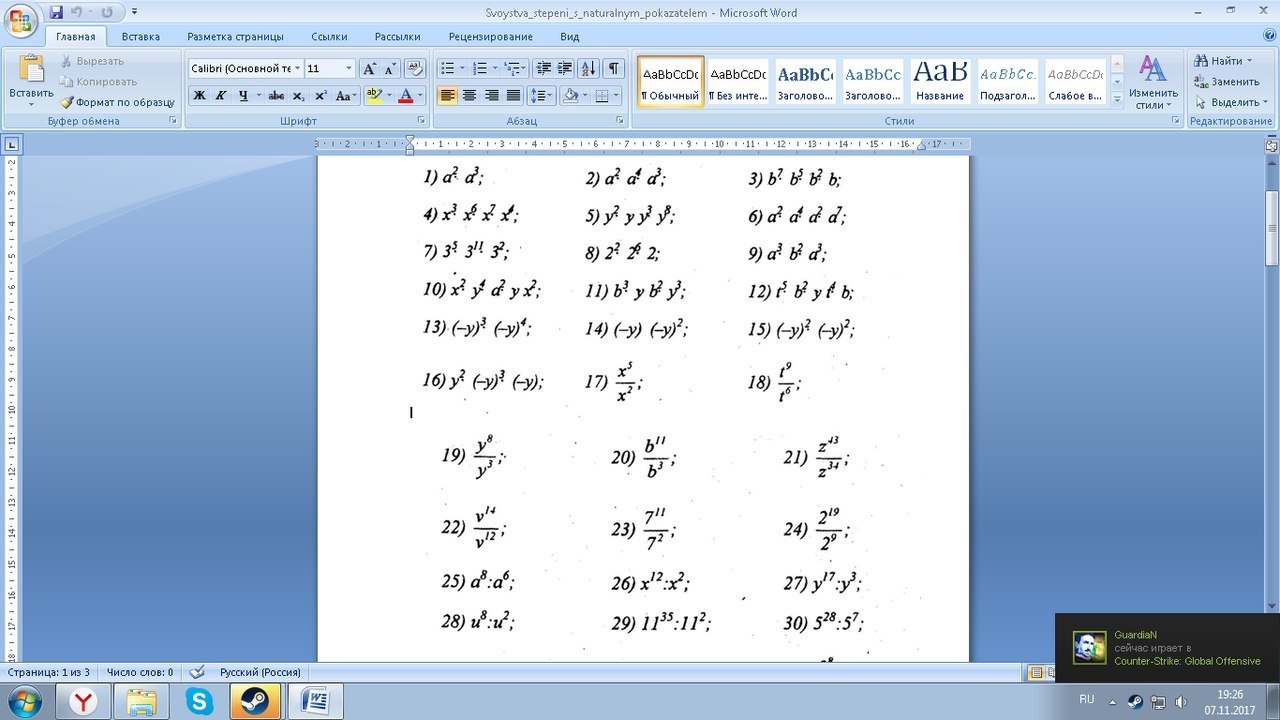 Svoystva_stepeni_s_naturalnym_pokazatelem - Microsoft Word
Главная Вставка Разметка страницы Ссылки Рассылки Рецензирование Вид
Вставить
Вырезать
Копировать
Формат по образцу
Буфер обмена
Calibri (Основной те 11
Ж К Ч abe x₂ x² Aa
Шрифт
Абзац
AaBbCcDc AaBbCcDc AaBbC AaBbCc АаВ AaBbCc. AaBbCcDc
¶ Обычный ¶ Без инте... Заголово... Заголово... Название Подзагол... Слабое в...
Изменить стили
Стили
Найти
Заменить
Выделить
Редактирование
3 2 1 1 2 3 4 5 6 7 8 9 10 11 12 13 14 15 16 17
1) a² a³; 2) a² a⁴ a³; 3) b⁷ b⁵ b² b;
4) x³ x⁶ x⁷ x⁴; 5) y² y y³ y⁸; 6) a² a⁴ a² a⁷;
7) 3⁵ 3¹¹ 3²; 8) 2² 2⁶ 2; 9) a³ b² a³;
10) x² y⁴ a² y x²; 11) b³ y b² y³; 12) t⁵ b² y t⁴ b;
13) (–y)³ (–y)⁴; 14) (–y) (–y)²; 15) (–y)² (–y)²;
16) y² (–y)³ (–y); 17) x⁵/x²; 18) t⁹/t⁶;
19) y⁸/y³; 20) b¹¹/b³; 21) z⁴³/z³⁴;
22) v¹⁴/v¹²; 23) 7¹¹/7²; 24) 2¹⁹/2⁹;
25) a⁸:a⁶; 26) x¹²:x²; 27) y¹⁷:y³;
28) u⁸:u²; 29) 11³⁵:11²; 30) 5²⁸:5⁷;
GuardiaN
сейчас играет в
Counter-Strike: Global Offensive
Страница: 1 из 3 Число слов: 0 Русский (Россия)
RU
19:26
07.11.2017